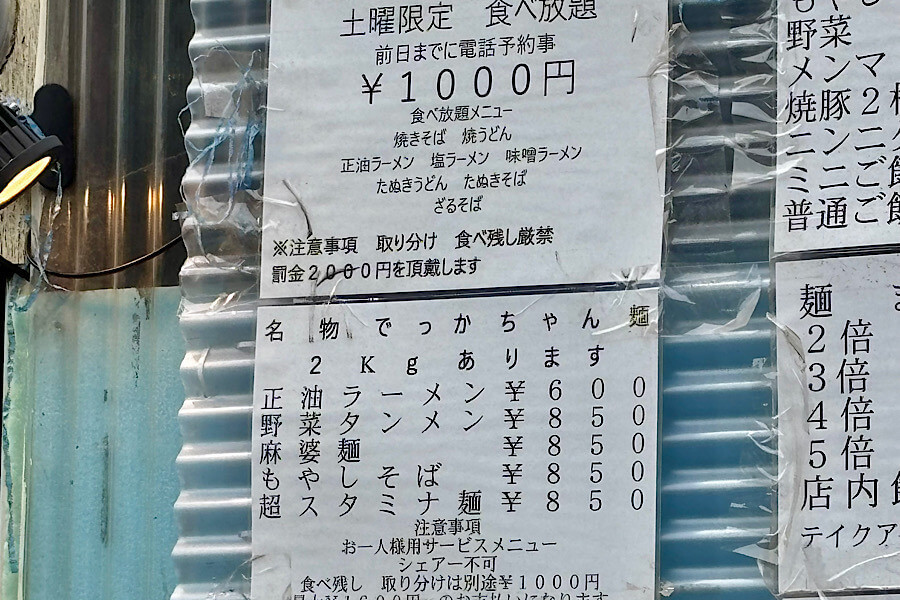 土曜限定 食べ放題
前日までに電話予約事
￥１０００円
食べ放題メニュー
焼きそば 焼うどん
正油ラーメン 塩ラーメン 味噌ラーメン
たぬきうどん たぬきそば
ざるそば
※注意事項 取り分け 食べ残し厳禁
罰金２０００円を頂戴します
名物でっかちゃん麺
２Ｋｇあります
正油ラーメン￥６００
野菜タンメン￥８５０
麻婆麺 ￥８５０
もやしそば ￥８５０
超スタミナ麺￥８５０
注意事項
お一人様用サービスメニュー
シェアー不可
食べ残し 取り分けは別途￥１０００円
野菜
メンマ
焼豚２
ニンニ
ミニご飯
普通ご飯
麺
２倍
３倍
４倍
５倍
店内
テイクア